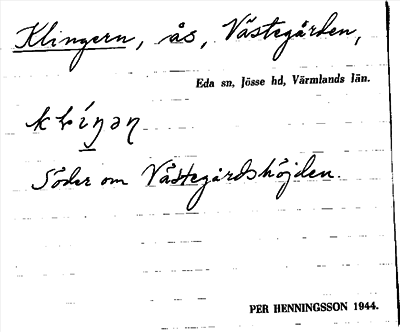 Klingern, ås, Västegården,
Eda sn, Jösse hd, Värmlands län.
Söder om Västegårdshöjden.
PER HENNINGSSON 1944.